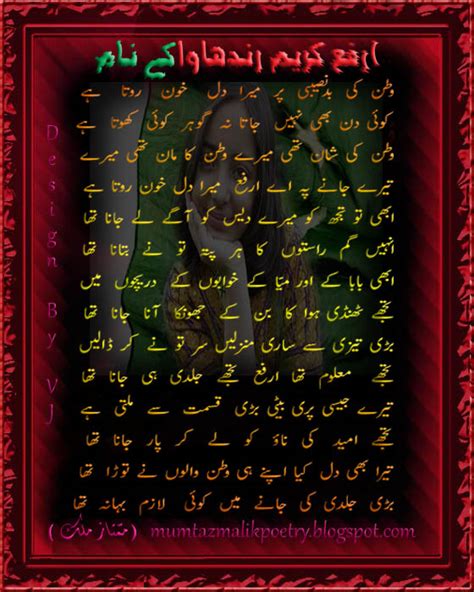 ارفع کریم رندھاوا کے نام
وطن کی بدنصیبی پر میرا دل خون روتا ہے
کوئی دن بھی نہیں جاتا نہ گوہر کوئی کھوتا ہے
وطن کی شان تھی میرے وطن کا مان تھی میرے
تیرے جانے پہ اے ارفع میرا دل خون روتا ہے
ابھی تو تجھ کو میرے دیس کو آگے لے جانا تھا
انہیں گم راستوں کا ہر پتہ تو نے بتانا تھا
ابھی بابا کے اور میّا کے خوابوں کے دریچوں میں
تجھے ٹھنڈی ہوا کا بن کے جھونکا آنا جانا تھا
بڑی تیزی سے ساری منزلیں سر تو نے کر ڈالیں
تجھے معلوم تھا ارفع تجھے جلدی ہی جانا تھا
تیرے جیسی پری بیٹی بڑی قسمت سے ملتی ہے
تجھے امید کی ناؤ کو لے کر پار جانا تھا
تیرا بھی دل کیا اپنے ہی وطن والوں نے توڑا تھا
بڑی جلدی کی جانے میں کوئی لازم بہانہ تھا
mumtazmalikpoetry.blogspot.com (ممتاز ملک)
Design By VJ